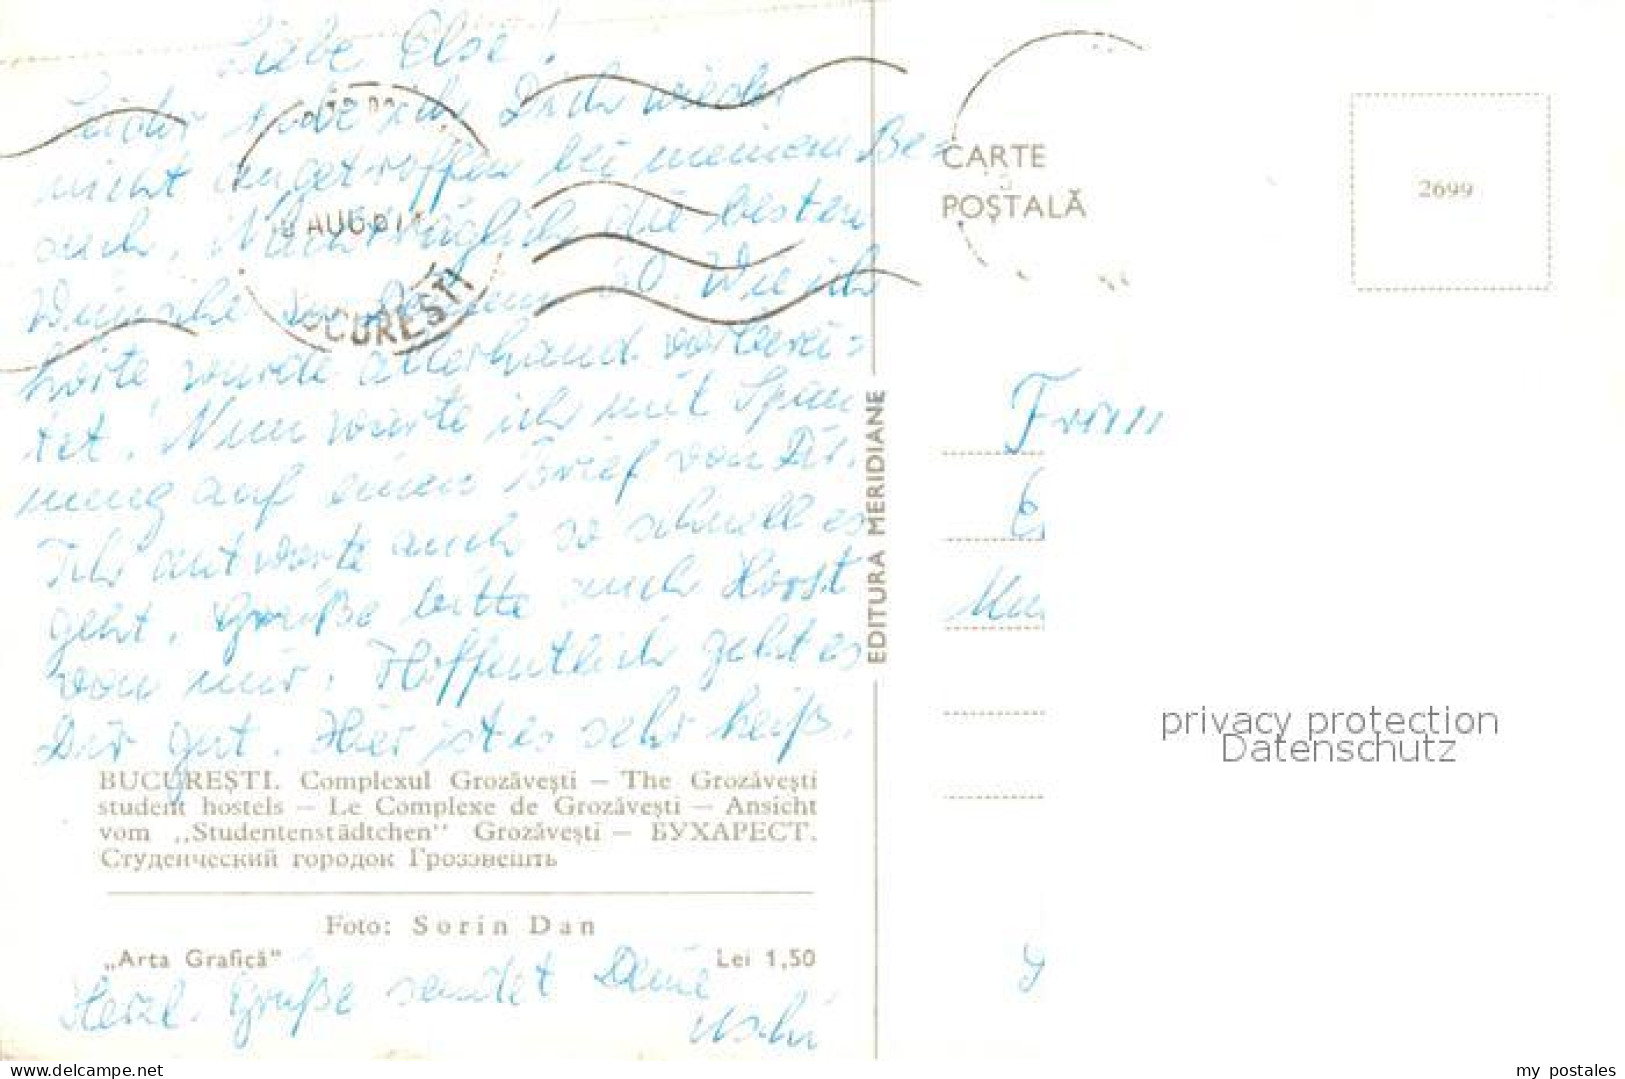 Liebe Else!
Leider habe ich Dich wieder
nicht angetroffen bei meinem Be=
such. Nachträglich die besten
Wünsche zu Deinem 50. Wie ich
hörte, wurde allerhand vorberei=
tet. Nun warte ich mit Span
nung auf einen Brief von Dir.
Ich antworte auch so schnell es
geht. Grüße bitte auch Horst
von mir. Hoffentlich geht es
Dir gut. Hier ist es sehr heiß.
AUG
BUCUREȘTI
BUCUREȘTI. Complexul Grozăvești — The Grozăvești
student hostels — Le Complexe de Grozăvești — Ansicht
vom „Studentenstädtchen" Grozăvești — БУХАРЕСТ.
Студенческий городок Грозэвешть
Foto: Sorin Dan
„Arta Grafică"
Lei 1,50
Herzl. Grüße sendet Deine
Uschi
EDITURA MERIDIANE
CARTE
POȘTALĂ
2699
privacy protection
Datenschutz
delcampe.net
my_postales